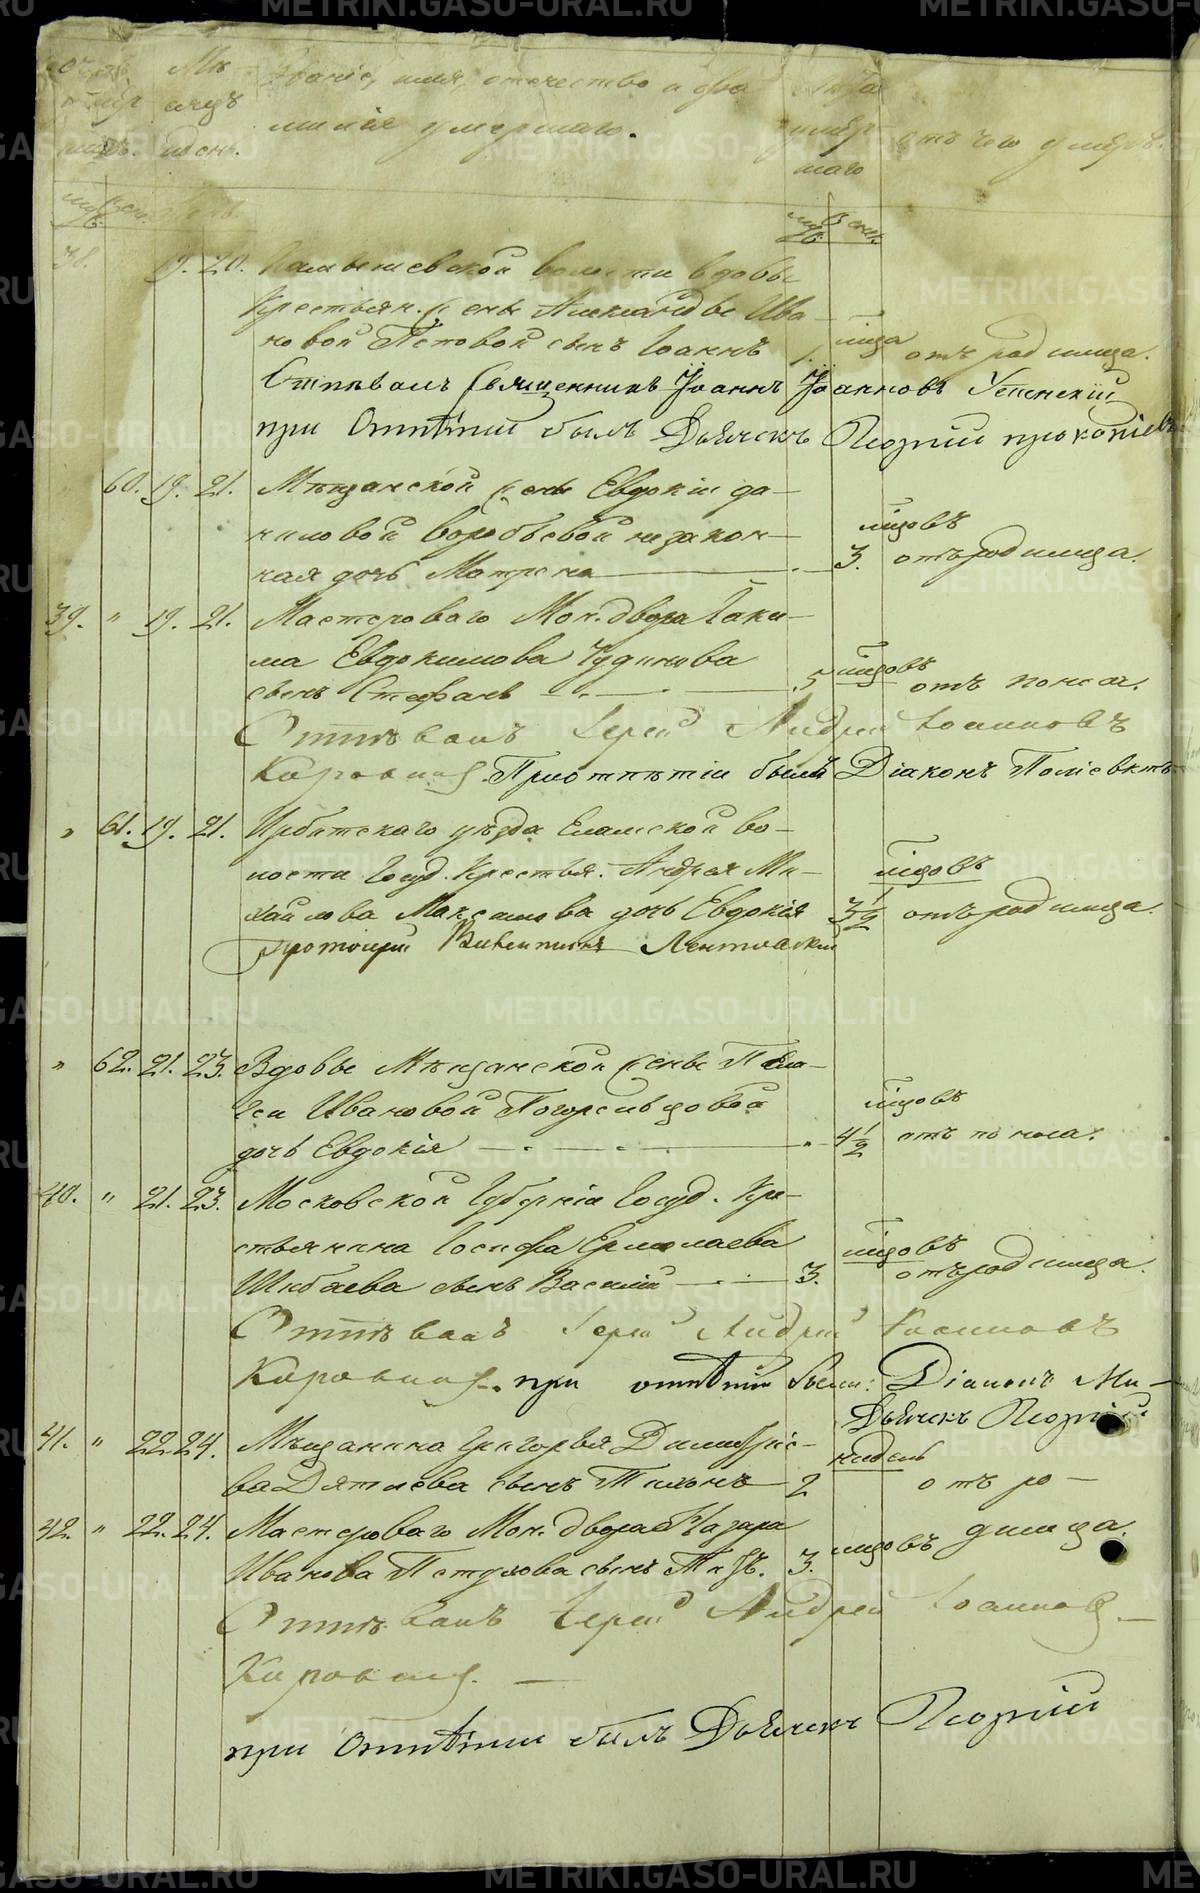 Званіе, имя, отечество и фа
милія умершаго.
Лѣта
умер
шаго
отъ чего умеръ.
38. 19. 20. волости вдовы
Крестьян. жены Александры Ива-
новой сынъ Іоаннъ 1. мѣсяца отъ родимца.
Отпѣвалъ Священникъ Іоаннъ Іоанновъ Успенскій
при Отпѣтіи былъ Дьячекъ Георгій Прокопіевъ
60. 19. 21. Мѣщанской жены Евдокіи Да-
ниловой Воробьевой незакон-
ная дочь Матрена 3. мѣсяцовъ отъ родимца.
39. " 19. 21. Мастероваго Мон. двора Іаки-
ма Евдокимова Чудинова
сынъ Стефанъ 5 мѣсяцовъ отъ поноса.
Отпѣвалъ Іерей Андрей Іоанновъ
Коровинъ. При отпѣтіи былъ Діаконъ Поліевктъ
" 61. 19. 21. Ирбитскаго уѣзда Еланской во-
лости Госуд. Крестья. Андрея Ми-
хайлова Максимова дочь Евдокія 3½ мѣсяцовъ отъ родимца.
Протоіерей Викентинъ
" 62. 21. 23. Вдовы Мѣщанской жены Пела-
геи Ивановой Погорельцовой
дочь Евдокія 4½ мѣсяцовъ отъ поноса.
40. " 21. 23. Московской Губерніи Госуд. Кре-
стьянина Іосифа Ермолаева
Шибаева сынъ Василій 3. мѣсяцовъ отъ родимца.
Отпѣвалъ Іерей Андрей Іоанновъ
Коровинъ. при отпѣтіи были: Діаконъ Ми-
Дьячекъ Георгій
41. " 22. 24. Мѣщанина Григорья Димитріе-
ва Дятлева сынъ Тихонъ 2 недѣль отъ ро-
димца.
42. " 22. 24. Мастероваго Мон. Двора Назара
Иванова сынъ 3. мѣсяцовъ
Отпѣвалъ Іерей Андрей Іоанновъ
Коровинъ.
при Отпѣтіи былъ Дьячекъ Георгій
METRIKI.GASO-URAL.RU